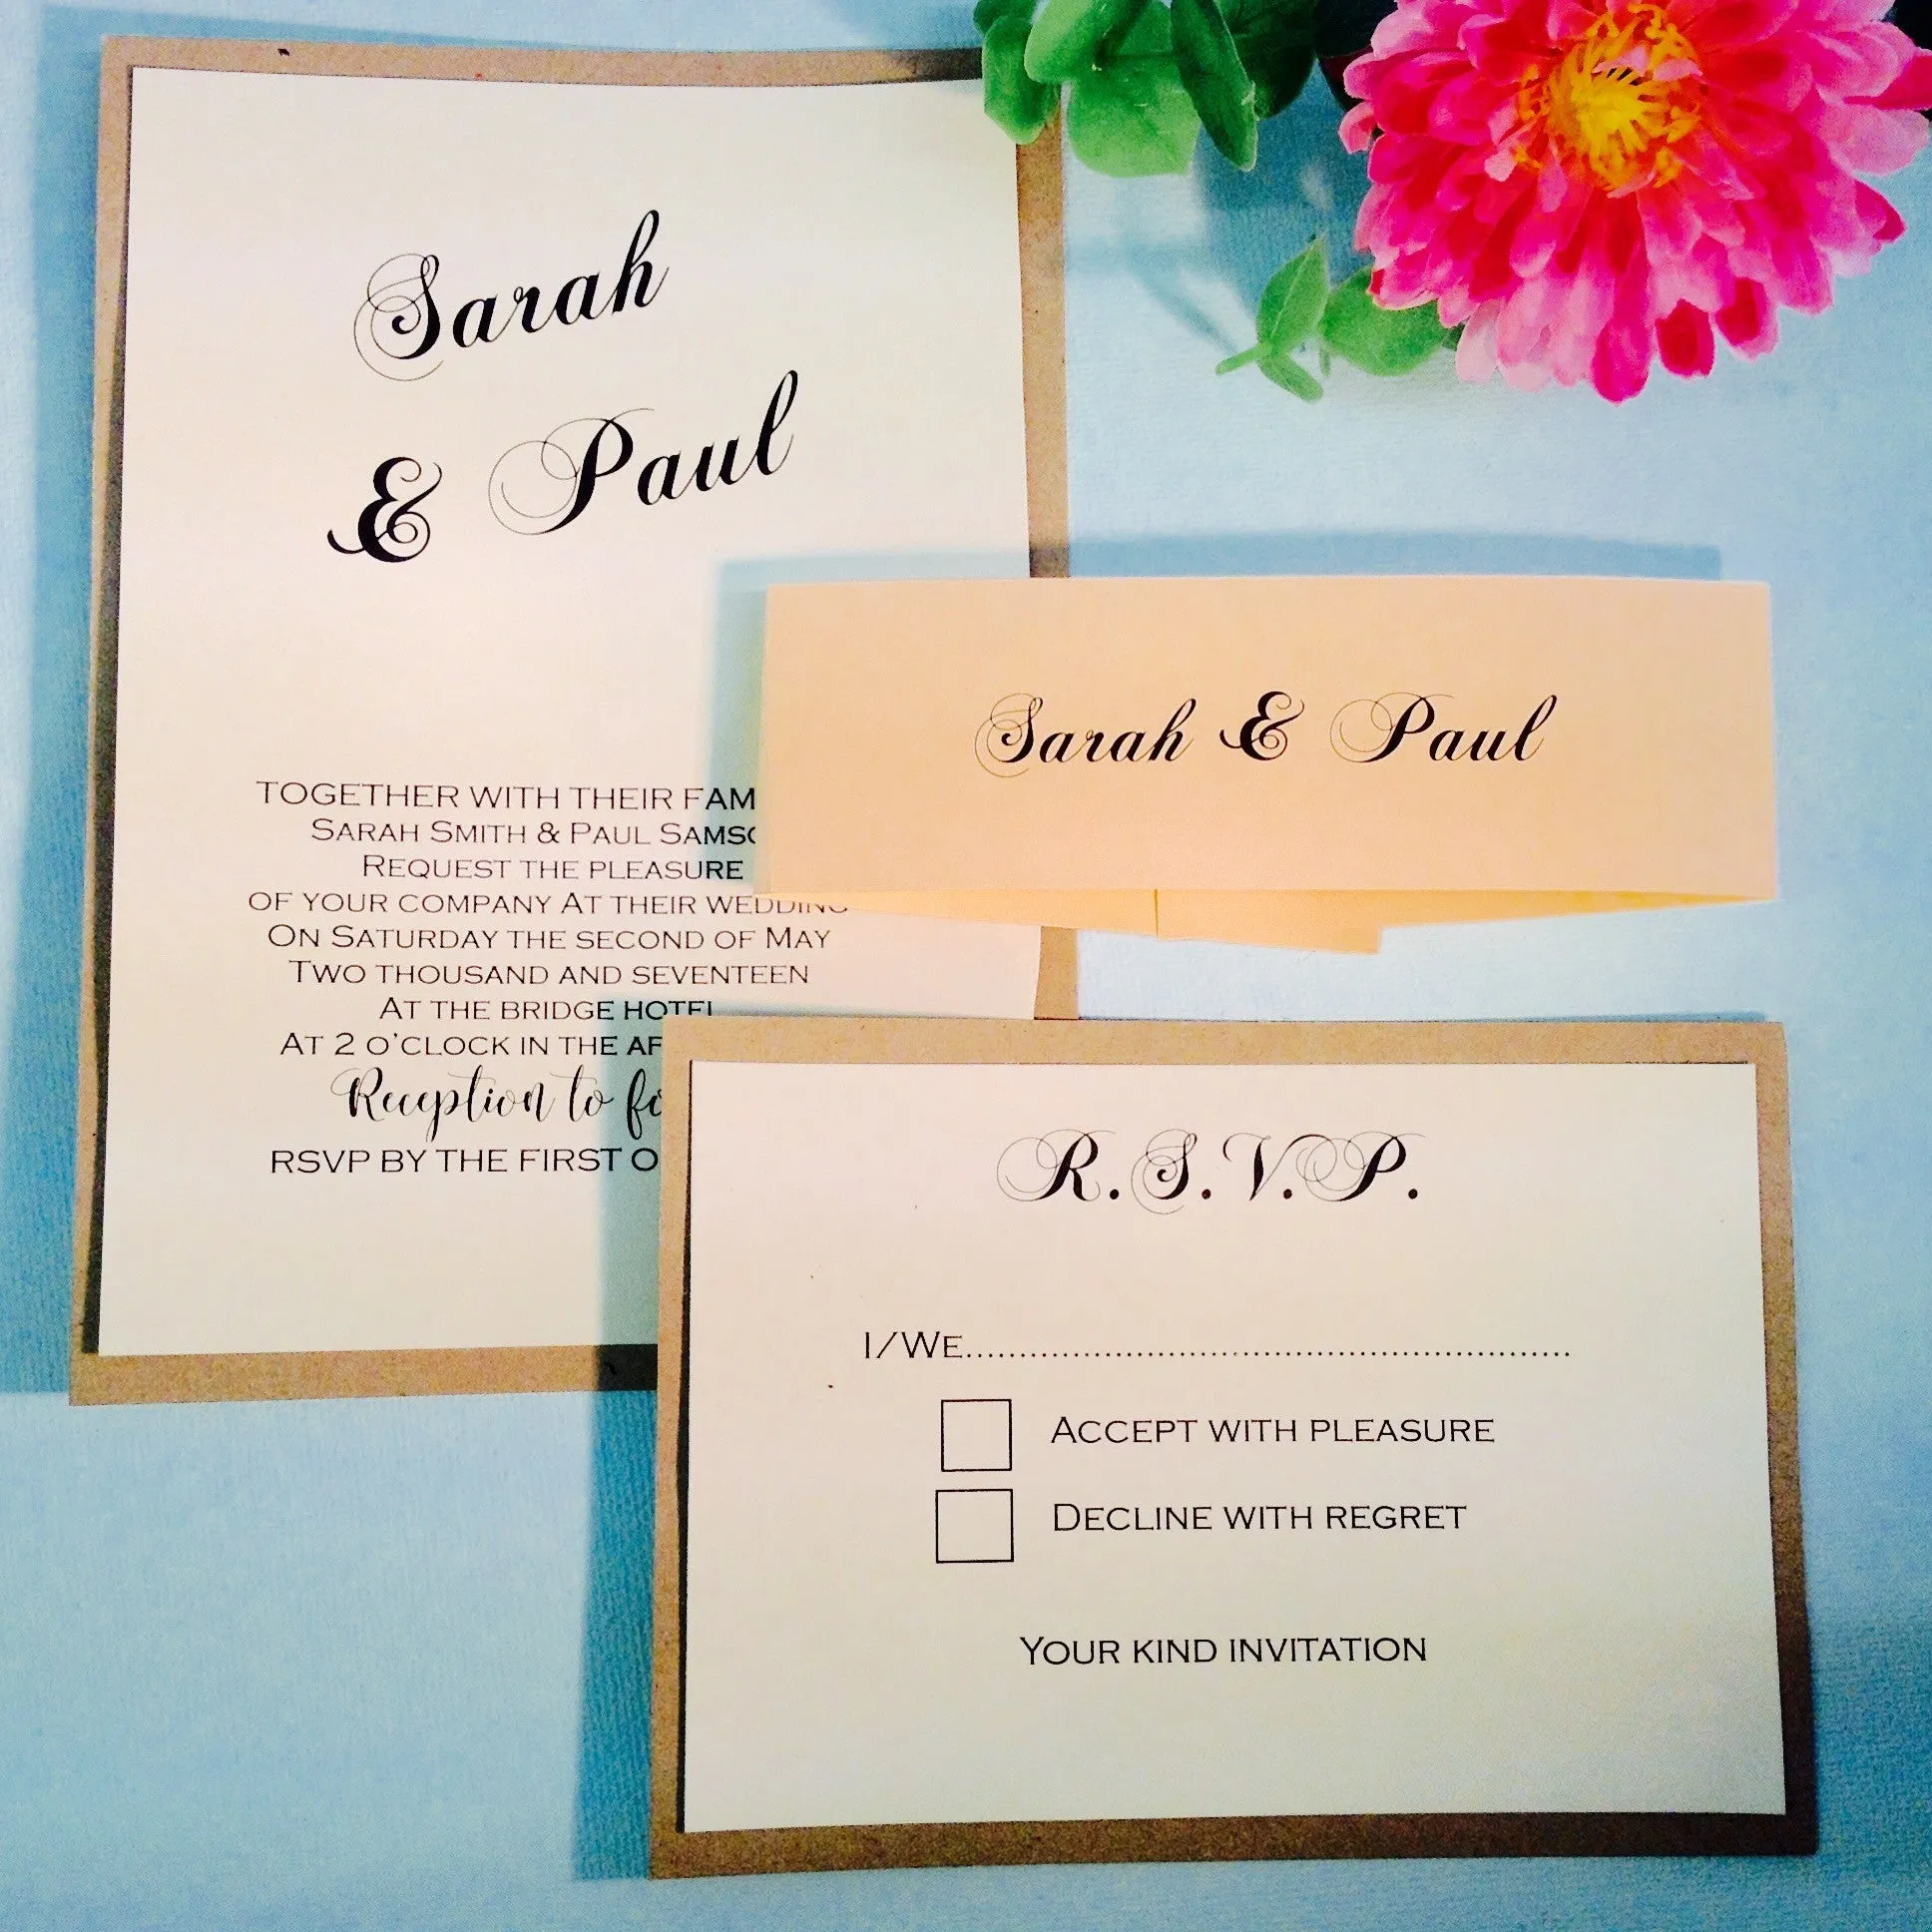 Sarah
& Paul
TOGETHER WITH THEIR
SARAH SMITH & PAUL
REQUEST THE PLEASURE
OF YOUR COMPANY AT THEIR WEDDING
ON SATURDAY THE SECOND OF MAY
TWO THOUSAND AND SEVENTEEN
AT THE BRIDGE HOTEL
AT 2 O'CLOCK IN THE
Reception to
RSVP BY THE FIRST
Sarah & Paul
R.S.V.P.
I/WE.........................................................
ACCEPT WITH PLEASURE
DECLINE WITH REGRET
YOUR KIND INVITATION